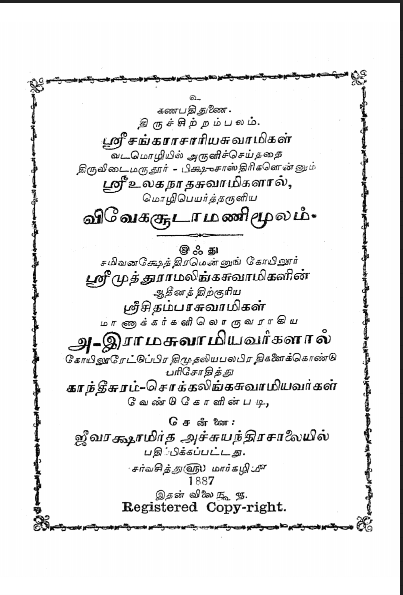 உ
கணபதிதுணை.
திருச்சிற்றம்பலம்.
ஸ்ரீசங்கராசாரியசுவாமிகள்
வடமொழியில் அருளிச்செய்ததை
திருவிடைமருதூர் - பிக்ஷுசாஸ்திரிகளென்னும்
ஸ்ரீஉலகநாதசுவாமிகளால்,
மொழிபெயர்த்தருளிய
விவேகசூடாமணிமூலம்.
இஃது
சமிவனக்ஷேத்திரமென்னுங் கோயிலூர்
ஸ்ரீமுத்துராமலிங்கசுவாமிகளின்
ஆதீனத்திற்குரிய
ஸ்ரீசிதம்பரசுவாமிகள்
மாணாக்கர்களிலொருவராகிய
அ-இராமசுவாமியவர்களால்
கோயிலூரேட்டுப்பிரதிமுதலியபலபிரதிகளைக்கொண்டு
பரிசோதித்து
காந்தீசுரம்-சொக்கலிங்கசுவாமியவர்கள்
வேண்டுகோளின்படி,
சென்னை:
ஜீவரக்ஷாமிர்த அச்சுயந்திரசாலையில்
பதிப்பிக்கப்பட்டது.
சர்வசித்து௵ மார்கழி௴
1887
இதன் விலை
Registered Copy-right.